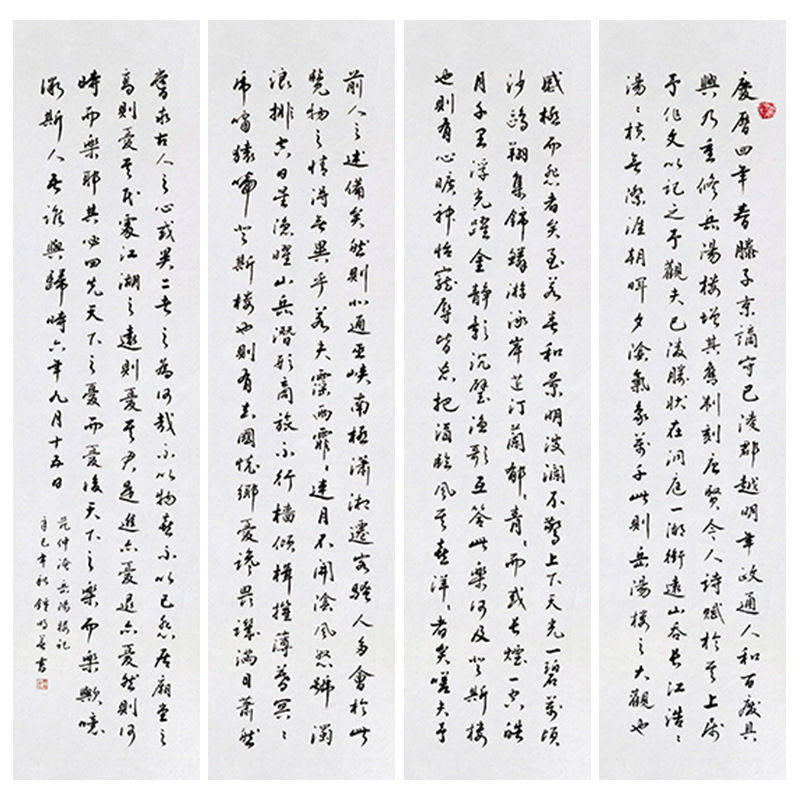 慶曆四年春滕子京謫守巴陵郡越明年政通人和百廢具
興乃重修岳陽樓增其舊制刻唐賢今人詩賦於其上屬
予作文以記之予觀夫巴陵勝狀在洞庭一湖銜遠山吞長江浩〻
湯〻橫無際涯朝暉夕陰氣象萬千此則岳陽樓之大觀也
前人之述備矣然則北通巫峽南極瀟湘遷客騷人多會於此
覽物之情得無異乎若夫霪雨霏〻連月不開陰風怒號濁
浪排空日星隱曜山岳潛形商旅不行檣傾楫摧薄暮冥〻
虎嘯猿啼登斯樓也則有去國懷鄉憂讒畏譏滿目蕭然
感極而悲者矣至若春和景明波瀾不驚上下天光一碧萬頃
沙鷗翔集錦鱗游泳岸芷汀蘭郁〻青〻而或長煙一空皓
月千里浮光躍金靜影沉璧漁歌互答此樂何及登斯樓
也則有心曠神怡寵辱皆忘把酒臨風其喜洋〻者矣嗟夫予
嘗求古人之心或異二者之為何哉不以物喜不以己悲居廟堂之
高則憂其民處江湖之遠則憂其君是進亦憂退亦憂然則何
時而樂耶其必曰先天下之憂而憂後天下之樂而樂歟噫
微斯人吾誰與歸時六年九月十五日
范仲淹岳陽樓記
辛巳年秋鍾明善書